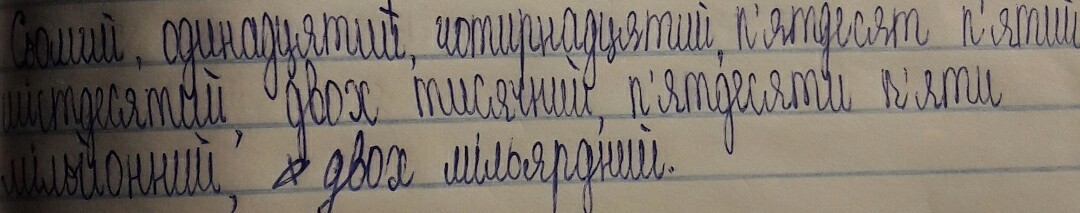 Сьомий, одинадцятий, чотирнадцятий, п'ятдесят п'ятий
шістдесятий, двох тисячний, п'ятдесяти п'яти
мільйонний, двох мільярдний.